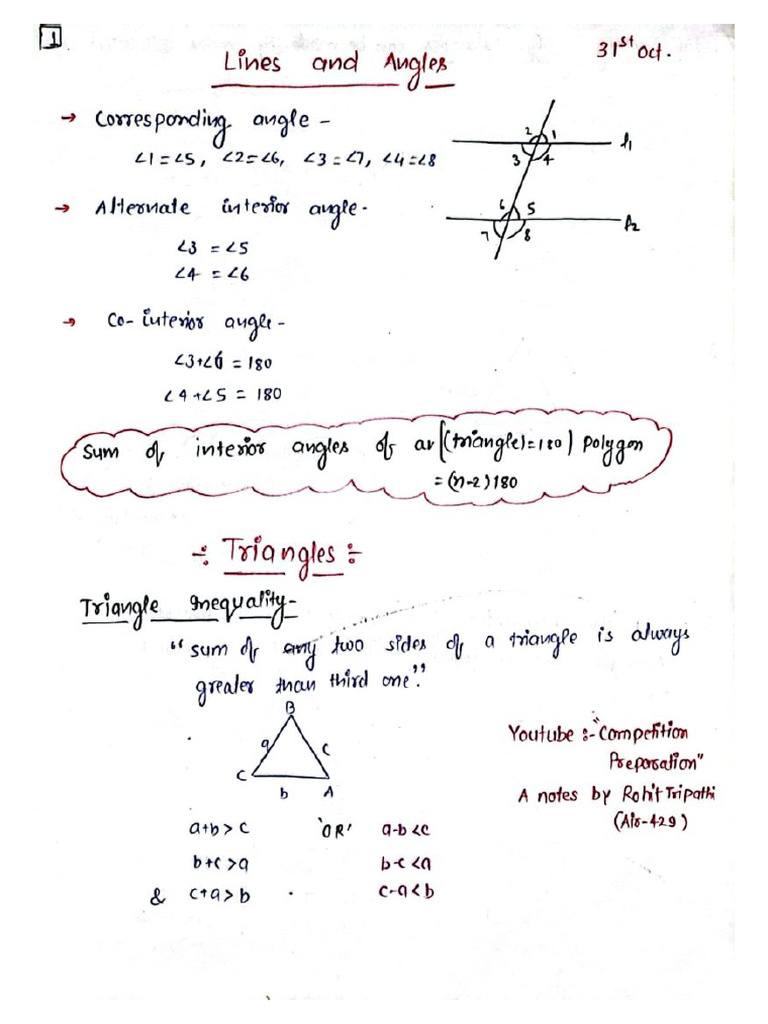 1
31st Oct.
Lines and Angles
→ Corresponding angle -
∠1=∠5, ∠2=∠6, ∠3=∠7, ∠4=∠8
2 1
3 4
l1
6 5
7 8
l2
→ Alternate interior angle -
∠3 = ∠5
∠4 = ∠6
→ Co-interior angle -
∠3+∠6 = 180
∠4+∠5 = 180
Sum of interior angles of [(triangle)=180] Polygon
= (n-2)180
÷ Triangles ÷
Triangle Inequality -
"sum of any two sides of a triangle is always
greater than third one".
B
a c
C
b A
Youtube :- "Competition
Preparation"
A notes by Rohit Tripathi
(Air-429)
a+b>c 'OR' a-b<c
b+c>a b-c<a
& c+a>b c-a<b